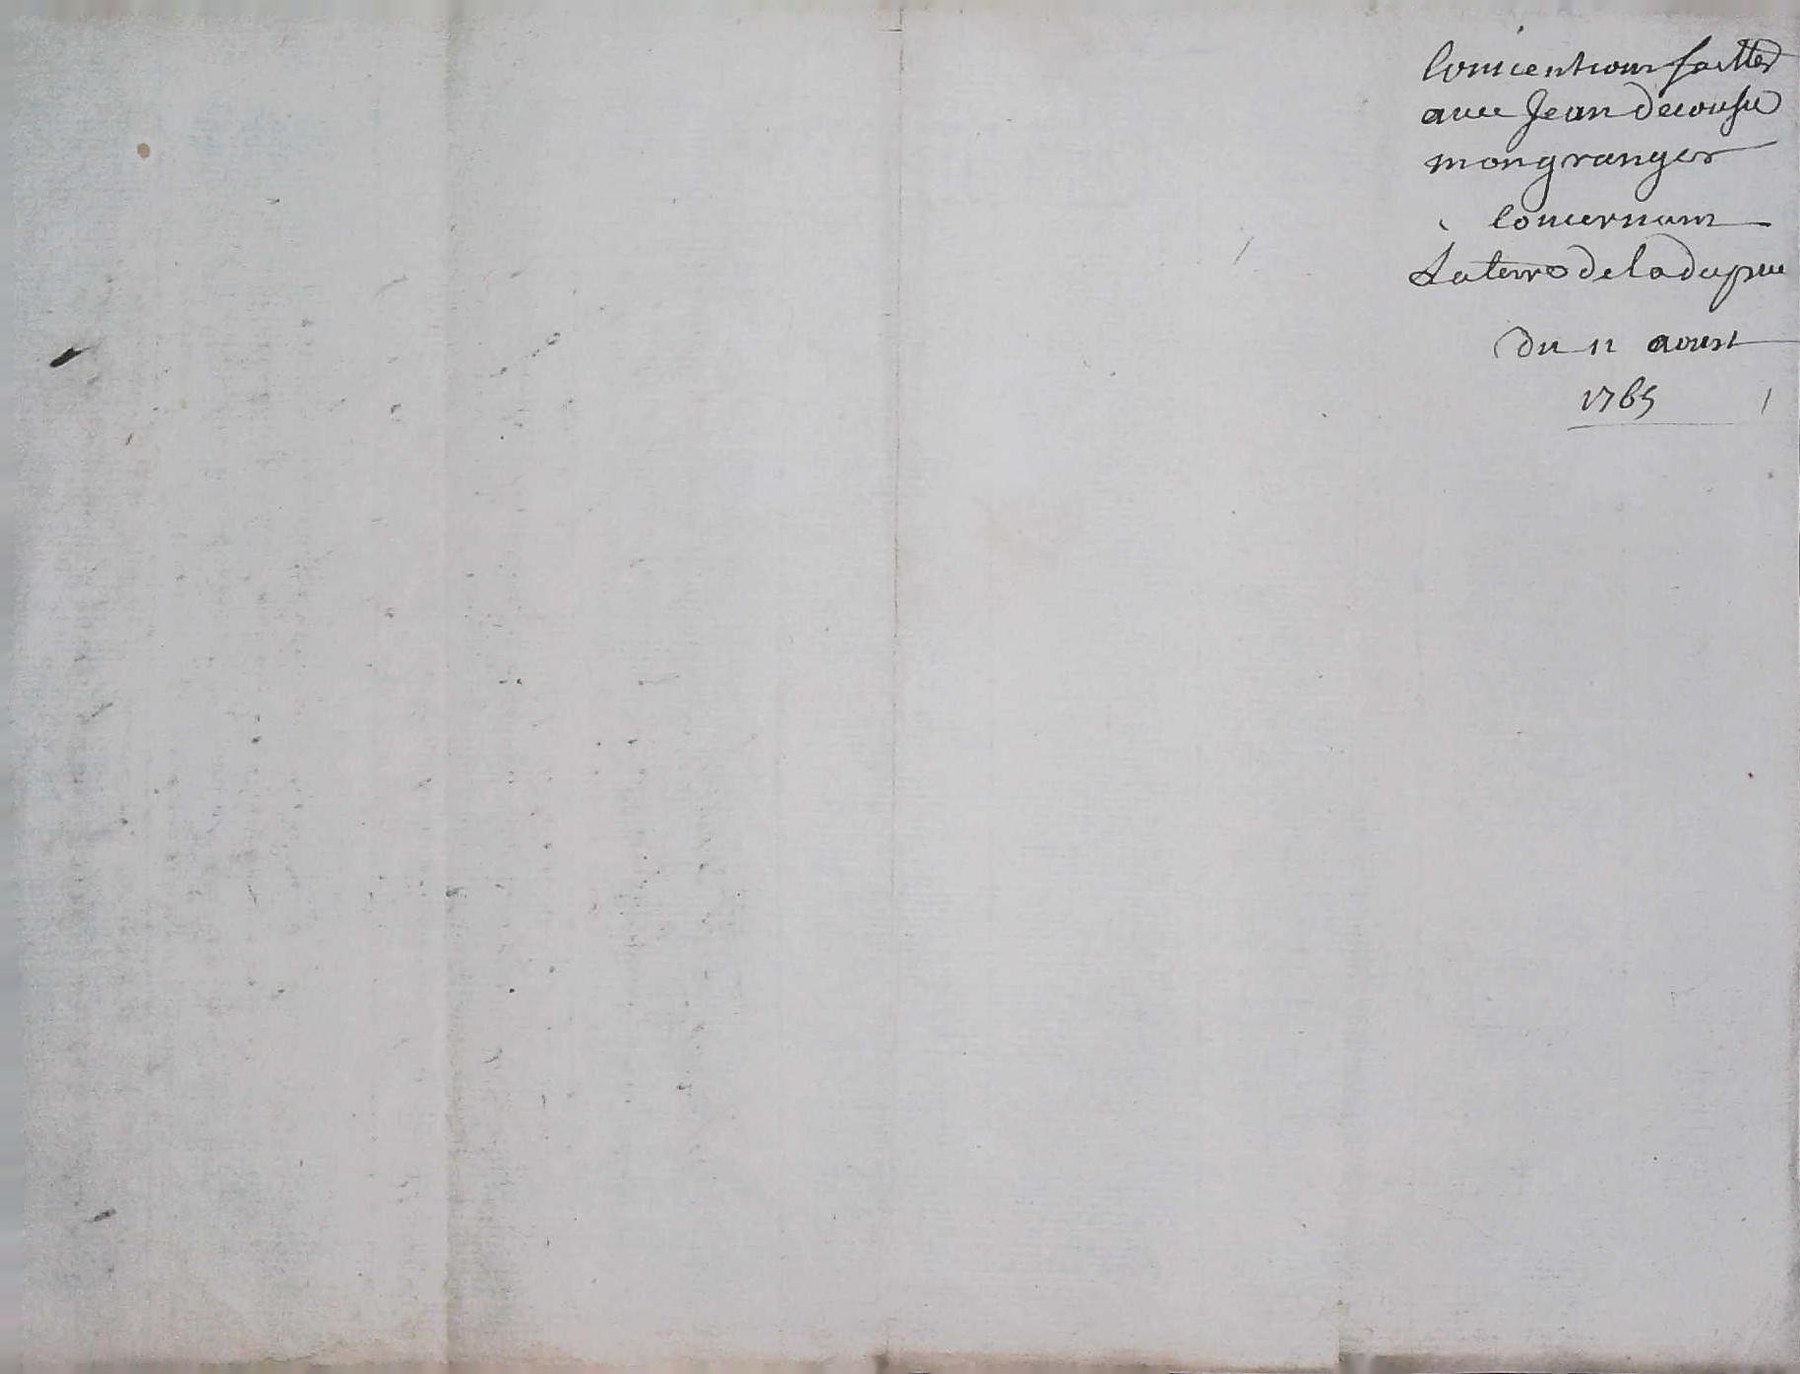 Convientions faittes
avec Jean decousu
mon granger
Concernant
La terre de la dupne
du 11 aoust
1765